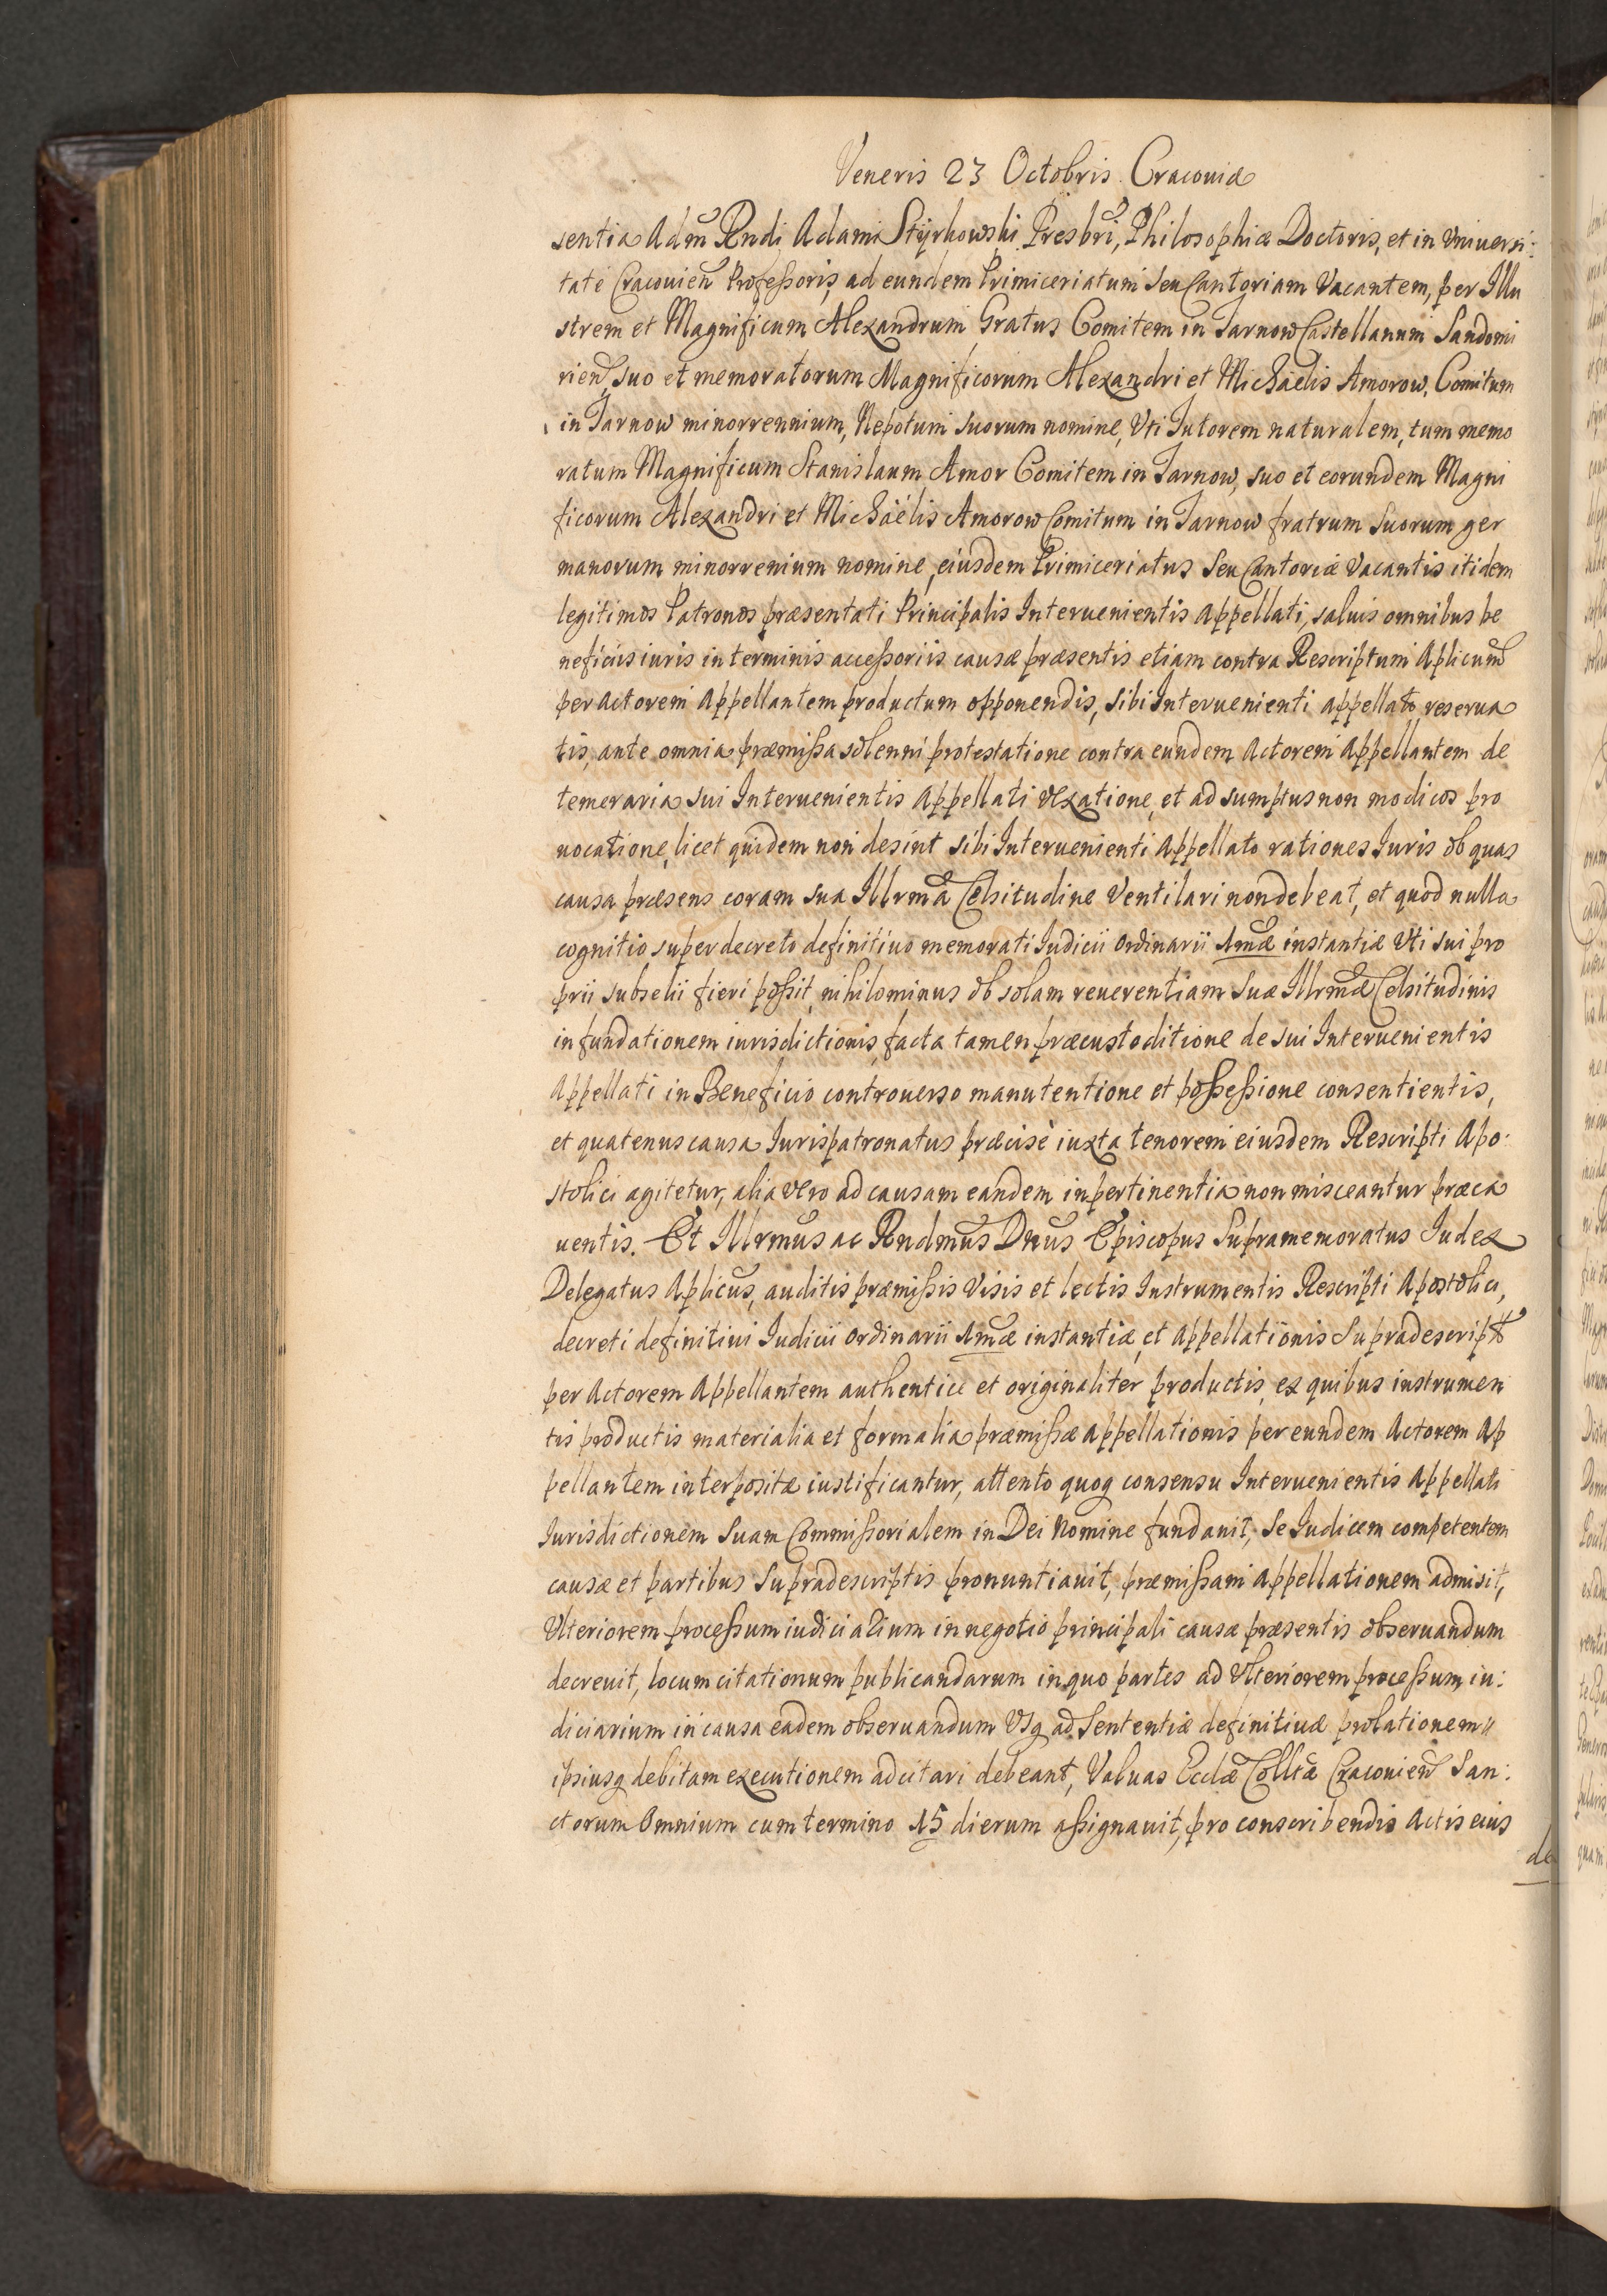 Veneris 23 Octobris Cracouiæ
sentia Adm̃ Rndi Adami Styrkowski Presbri, Philosophiæ Doctoris, et in Vniuersi:
tate Cracouień Professoris, ad eundem Primiceriatum seu Cantoriam Vacantem, per Illu
strem et Magnificum Alexandrum Gratus Comitem in Tarnow Castellanum Sandomi
rień, suo et memoratorum Magnificorum Alexandri et Michaelis Amorow, Comitum
in Tarnow minorrennium, Nepotum suorum nomine, Vti Tutorem naturalem, tum memo
ratum Magnificum Stanislaum Amor Comitem in Tarnow, suo et eorundem Magni
ficorum Alexandri et Michaëlis Amorow Comitum in Tarnow fratrum Suorum ger
manorum minorrenium nomine, eiusdem Primiceriatus Seu Cantoriæ Vacantis itidem
legitimos Patronos præsentati Principalis Interuenientis Appellati, saluis omnibus be
neficiis iuris in terminis accessoriis causæ præsentis etiam contra Rescriptum Aplicum
per Actorem Appellantem productum opponendis, sibi Interuenienti appellato reserua
tis, ante omnia præmissa solenni protestatione contra eundem Actorem Appellantem de
temeraria sui Interuenientis Appellati vexatione, et ad sumptus non modicos pro
uocatione, licet quidem non desint sibi Interuenienti Appellato rationes Iuris ob quas
causa præsens coram sua Illrmã Celsitudine Ventilari non debeat, et quod nulla
cognitio super decreto definitiuo memorati Iudicii Ordinarii Amæ instantiæ Vti sui pro
prii subselii fieri possit, nihilominus ob solam reuerentiam Suæ Illrmæ Celsitudinis
in fundationem iurisdictionis, facta tamen præcustoditione de sui Interuenientis
Appellati in Beneficio controuerso manutentione et possessione consentientis,
et quatenus causa Iurispatronatus præcisè iuxta tenorem eiusdem Rescripti Apo:
stolici agitetur, alia vero ad causam eandem inpertinentia non misceantur præca
uentis. Et Illrmus ac Rndmus Dnus Episcopus Supramemoratus Iudex
Delegatus Aplicus, auditis præmissis Visis et lectis Instrumentis Rescripti Apostolici,
decreti definitiui Iudicii Ordinarii Amæ instantiæ, et Appellationis Supradescript
per Actorem Appellantem authenticè et originaliter productis, ex quibus instrumen
tis productis materialia et formalia præmissæ Appellationis per eundem Actorem Ap
pellantem interpositæ iustificantur, attento quoq consensu Interuenientis Appellati
Iurisdictionem Suam Commissorialem in Dei Nomine fundauit, Se Iudicem competentem
causæ et partibus Supradescriptis pronuntiauit, præmissam Appellationem admisit,
Vlteriorem processum iudicialium in negotio principali causæ præsentis obseruandum
decreuit, locum citationum publicandarum in quo partes ad Vlteriorem processum iu:
diciarium in causa eadem obseruandum Vsq ad Sententiæ definitiuæ prolationem
ipsiusq debitam executionem adcitari debeant, Valuas Ecclæ Colltæ Cracouień San:
ctorum Omnium cum termino 15 dierum assignauit, pro conscribendis Actis eius
de